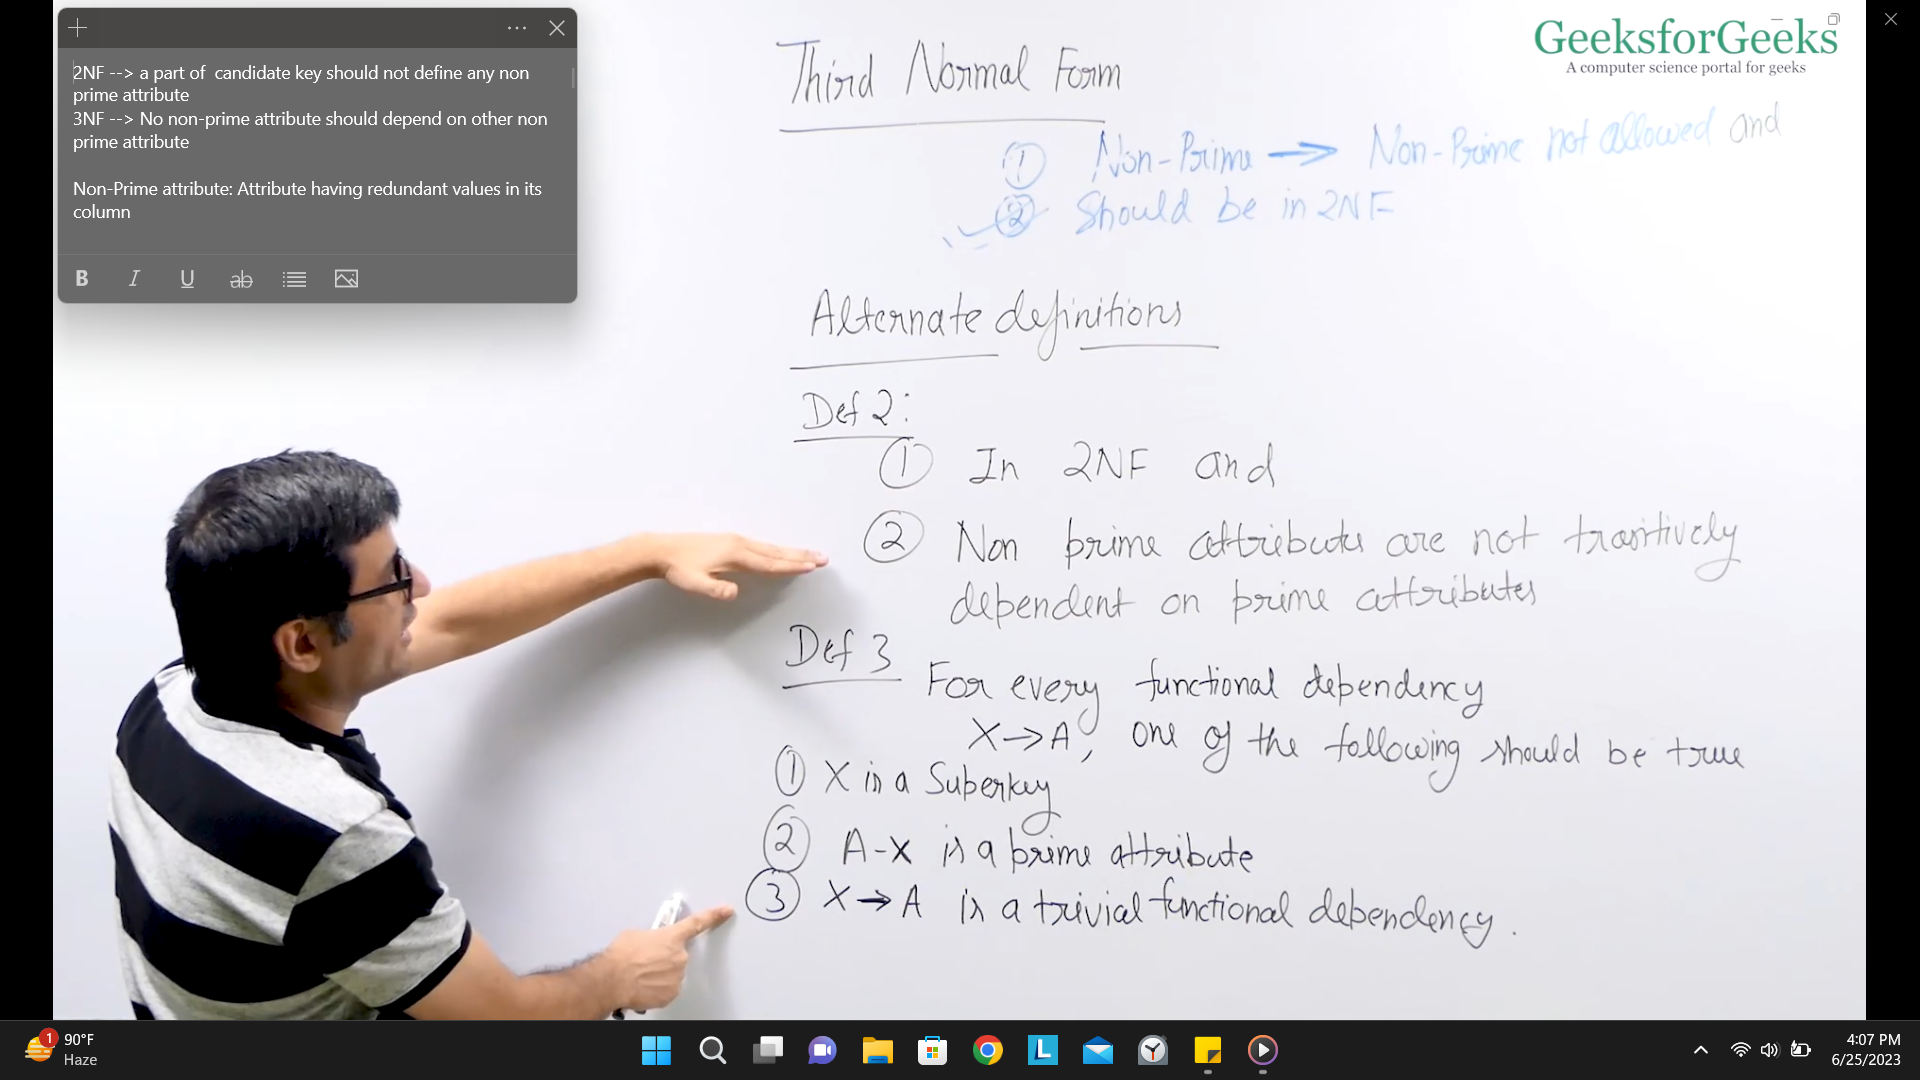 2NF --> a part of  candidate key should not define any non
prime attribute
3NF --> No non-prime attribute should depend on other non
prime attribute
Non-Prime attribute: Attribute having redundant values in its
column
B I U ab
GeeksforGeeks
A computer science portal for geeks
Third Normal Form
① Non-Prime → Non-Prime not allowed and
② Should be in 2NF
Alternate definitions
Def 2:
① In 2NF and
② Non prime attributes are not transitively
dependent on prime attributes
Def 3
For every functional dependency
X→A, one of the following should be true
① X is a Superkey
② A-X is a prime attribute
③ X→A is a trivial functional dependency.
1
90°F
Haze
L
4:07 PM
6/25/2023